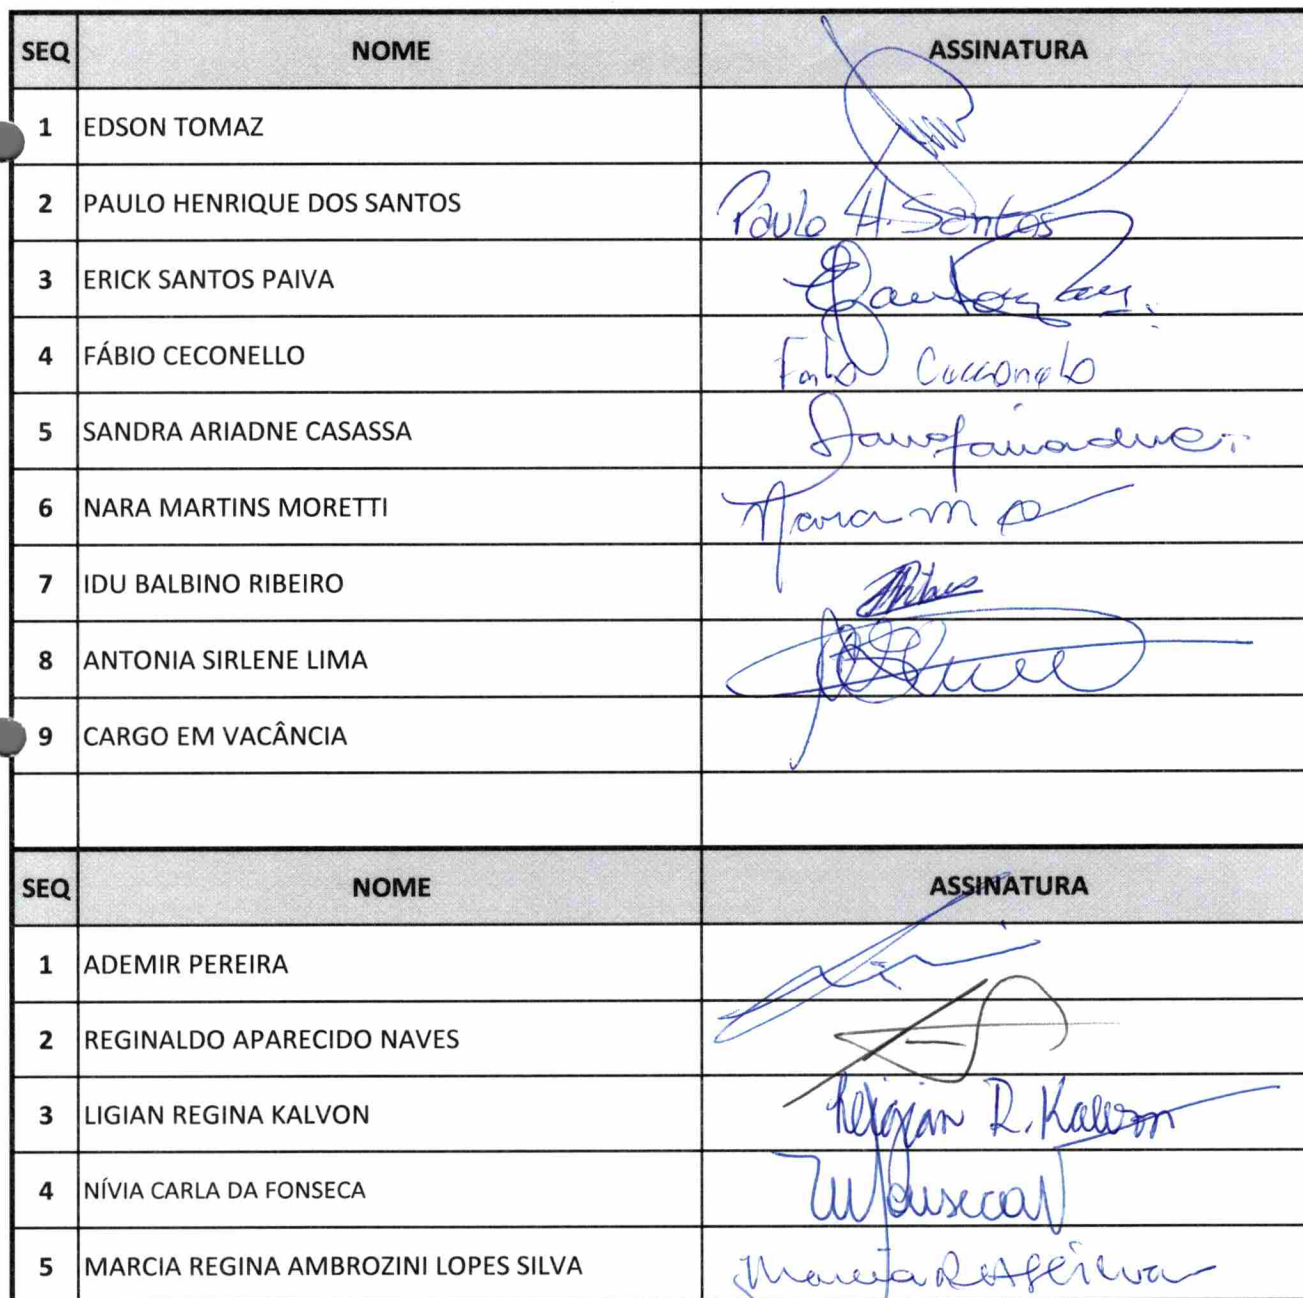 SEQ NOME ASSINATURA
1 EDSON TOMAZ
2 PAULO HENRIQUE DOS SANTOS Paulo H. Santos
3 ERICK SANTOS PAIVA
4 FÁBIO CECONELLO
5 SANDRA ARIADNE CASASSA
6 NARA MARTINS MORETTI Nara M
7 IDU BALBINO RIBEIRO
8 ANTONIA SIRLENE LIMA
9 CARGO EM VACÂNCIA
SEQ NOME ASSINATURA
1 ADEMIR PEREIRA
2 REGINALDO APARECIDO NAVES
3 LIGIAN REGINA KALVON Ligian R. Kalvon
4 NÍVIA CARLA DA FONSECA
5 MARCIA REGINA AMBROZINI LOPES SILVA